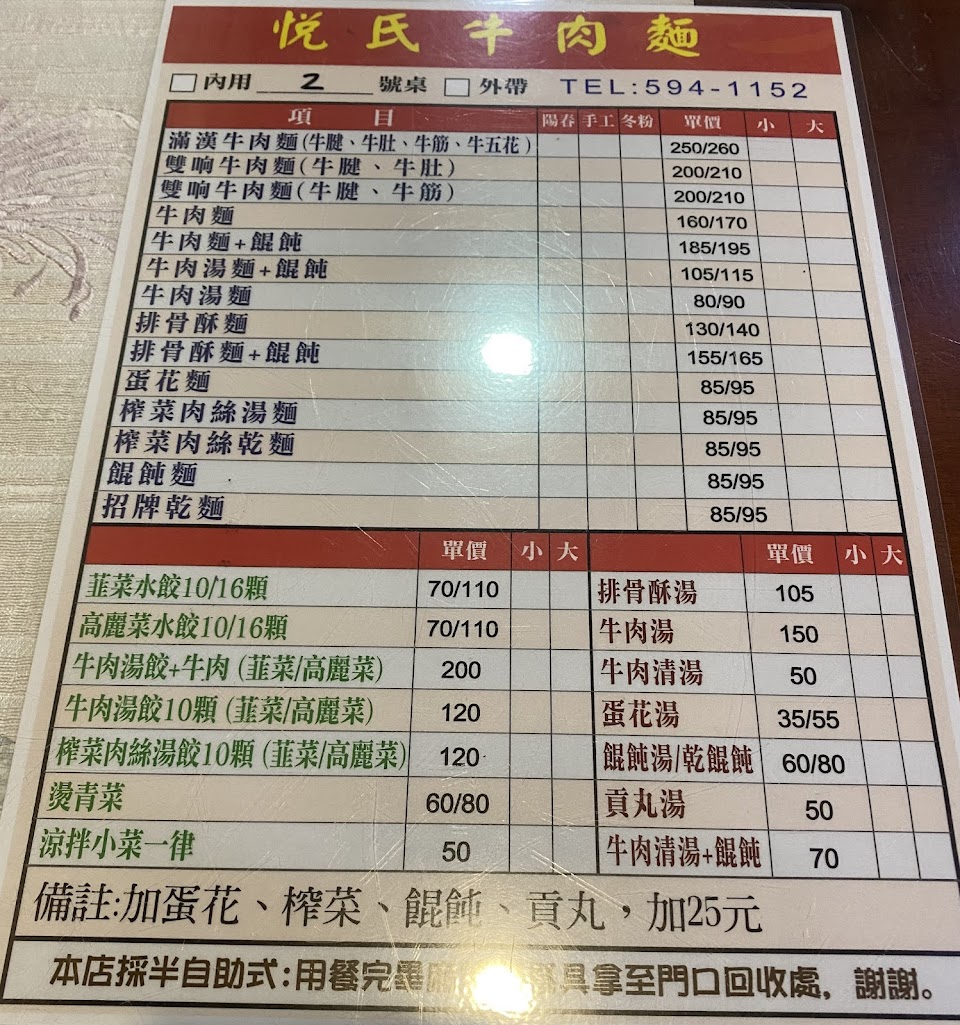 悅氏牛肉麵
內用 2 號桌 外帶 TEL:594-1152
項目 陽春 手工 冬粉 單價 小 大
滿漢牛肉麵(牛腱、牛肚、牛筋、牛五花) 250/260
雙响牛肉麵(牛腱、牛肚) 200/210
雙响牛肉麵(牛腱、牛筋) 200/210
牛肉麵 160/170
牛肉麵+餛飩 185/195
牛肉湯麵+餛飩 105/115
牛肉湯麵 80/90
排骨酥麵 130/140
排骨酥麵+餛飩 155/165
蛋花麵 85/95
榨菜肉絲湯麵 85/95
榨菜肉絲乾麵 85/95
餛飩麵 85/95
招牌乾麵 85/95
單價 小 大 單價 小 大
韮菜水餃10/16顆 70/110 排骨酥湯 105
高麗菜水餃10/16顆 70/110 牛肉湯 150
牛肉湯餃+牛肉(韮菜/高麗菜) 200 牛肉清湯 50
牛肉湯餃10顆(韮菜/高麗菜) 120 蛋花湯 35/55
榨菜肉絲湯餃10顆(韮菜/高麗菜) 120 餛飩湯/乾餛飩 60/80
燙青菜 60/80 貢丸湯 50
涼拌小菜一律 50 牛肉清湯+餛飩 70
備註:加蛋花、榨菜、餛飩、貢丸，加25元
本店採半自助式:用餐完畢 具拿至門口回收處，謝謝。